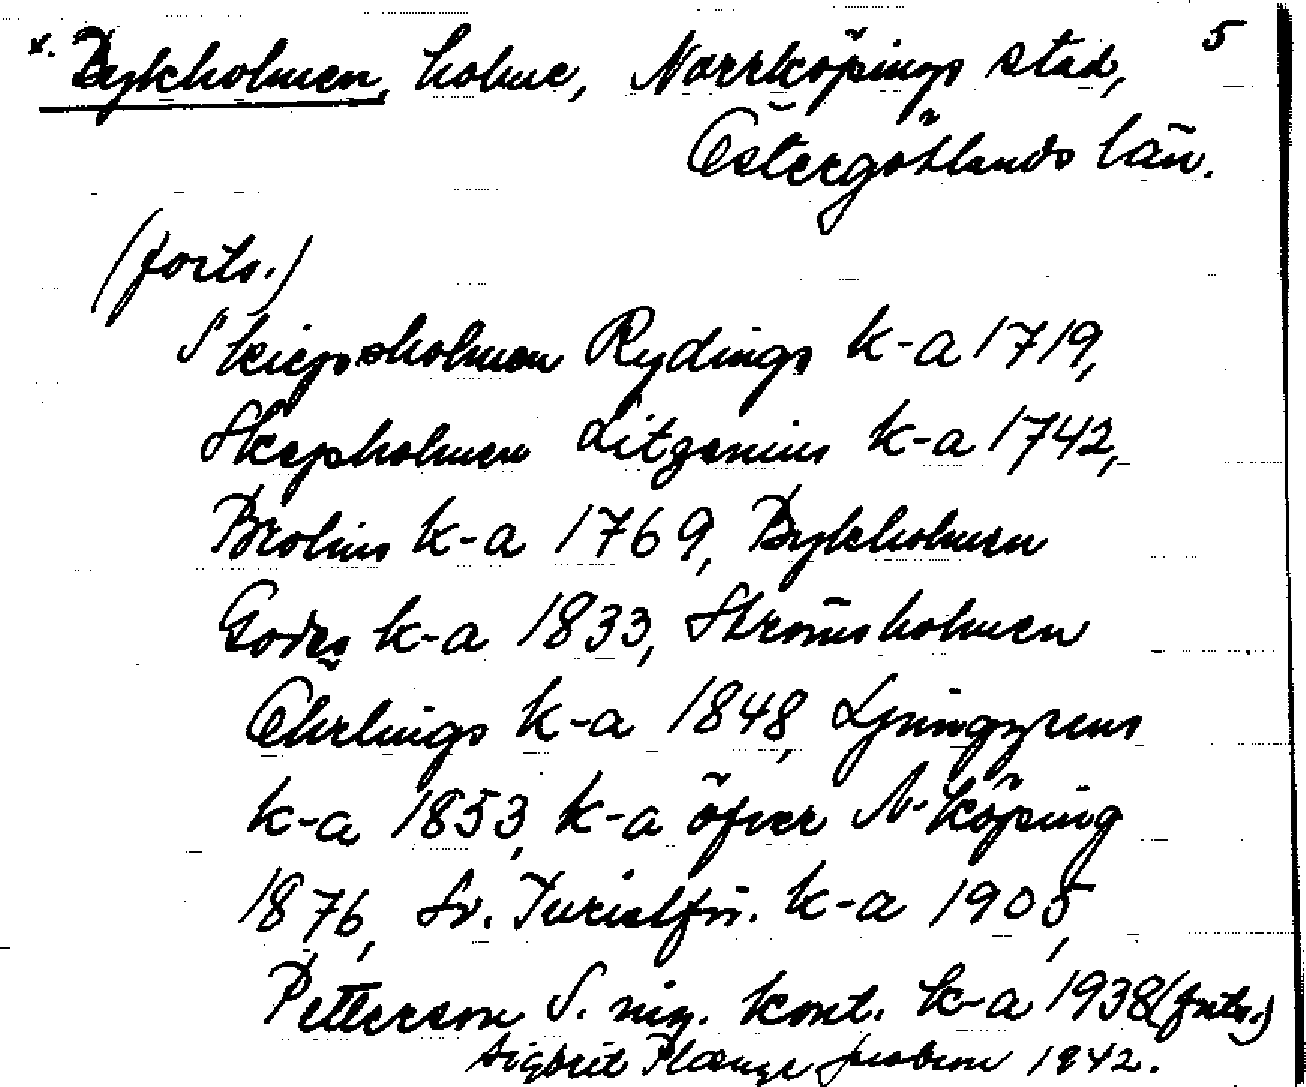 x. Dykholmen, holme, Norrköpings stad, 5
Östergötlands län.
(forts.)
Skiepsholmen Rydings k-a 1719,
Skepholmen Litzenius k-a 1742,
Brolins k-a 1769, Dykholmen
Godes k-a 1833, Strömsholmen
Ehrlings k-a 1848, Ljunggrens
k-a 1853, k-a öfver N-köping
1876, Sv. Turistför. k-a 1905,
Petterson S. ing. kont. k-a 1938 (forts.)
Sigbrit Plænge Jacobson 1942.